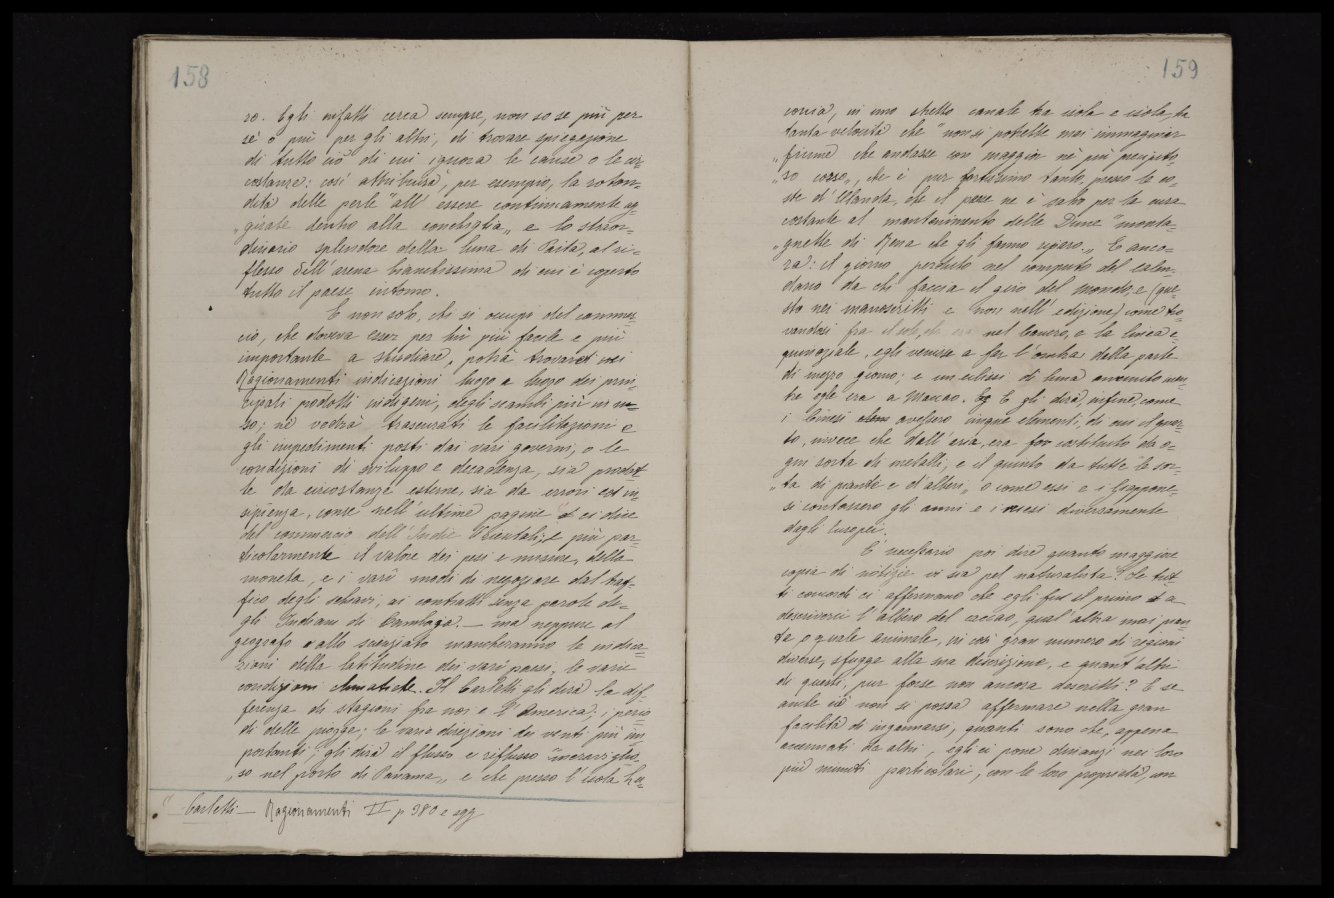 158
ro. Egli infatti cerca sempre, non so se più per
sè o più per gli altri, di trovare spiegazione
di tutto ciò di cui ignora le cause o le cir=
costanze: così attribuirà, per esempio, la roton=
dità delle perle "all' essere continuamente ag=
"girate dentro alla conchiglia„ e lo straor=
dinario splendore della luna di Paita, al ri=
flesso dell'arena bianchissima di cui è coperto
tutto il paese intorno.
E non solo, chi si occupi del commer=
cio, che doveva esser per lui più facile e più
importante a studiare, potrà trovare nei
Ragionamenti indicazioni luogo a luogo dei prin=
cipali prodotti indigeni, degli scambi più in u=
so; nè vedrà trascurati le facilitazioni e
gli impedimenti posti dai vari governi, o le
condizioni di sviluppo e decadenza, sia prodot=
te da circostanze esterne, sia da errori ed in=
sipienza, come nell' ultime pagine ci dice
del commercio dell'Indie Orientali; e più par=
ticolarmente il valore dei pesi e misure, della
moneta, e i varii modi di negoziare dal traf=
fico degli schiavi, ai contratti senza parole de=
gli Indiani di . — ma neppure al
geografo o allo scienziato mancheranno le indica=
zioni della latitudine dei vari paesi, le varie
condizioni climatiche. Il Carletti gli dirà la dif=
ferenza di stagioni fra noi e l'America; i perio=
di delle piogge; le varie direzioni dei venti più im=
portanti; gli dirà il flusso e riflusso "meraviglio=
"so nel porto di Panama„ e che presso l'isola
Carletti — Ragionamenti II p 380 e sgg
159
corsia, in uno stretto canale tra isola e isola, ha
tanta velocità che "non si potrebbe mai immaginar
"fiume che andasse con maggior nè più precipito=
"so corso„, che è pur fortissimo tanto presso le co=
ste d'Olanda, che il paese ne è salvo per la cura
costante al mantenimento delle Dune "monta=
"gnette di Rena che gli fanno riparo.„ E anco=
ra: il giorno perduto nel computo del calen=
dario da chi faccia il giro del mondo, e (que=
sto nei manoscritti e non nell'edizione) come tro=
vandosi fra il sole, che era nel Cancro, e la linea e=
quinoziale, egli venisse a far l'ombra della parte
di mezzo giorno; e un eclissi di luna avvenuto men=
tre egli era a Macao. Egli dirà, infine, come
i Cinesi avessero cinque elementi, di cui il quar=
to, invece che dall'aria, era costituito da o=
gni sorta di metalli; e il quinto da tutte "le sor=
"ta di piante e d'alberi„ o come essi e i Giappone=
si contassero gli anni e i mesi diversamente
dagli Europei.
È necessario poi dire quanto maggiore
copia di notizie vi sia pel naturalista? Se tut=
ti concordi ci affermano che egli fu il primo a
descriverci l'albero del caccao, qual'altra mai pian
ta o quale animale, in così gran numero di regioni
diverse, sfugge alla sua descrizione, e quant'altri
di questi, pur forse non ancora descritti? E se
anche ciò non si possa affermare nella gran
facilità di ingannarsi, quanti sono che, appena
accennati da altri, egli ci pone dinanzi nei loro
più minuti particolari, con le loro proprietà, con